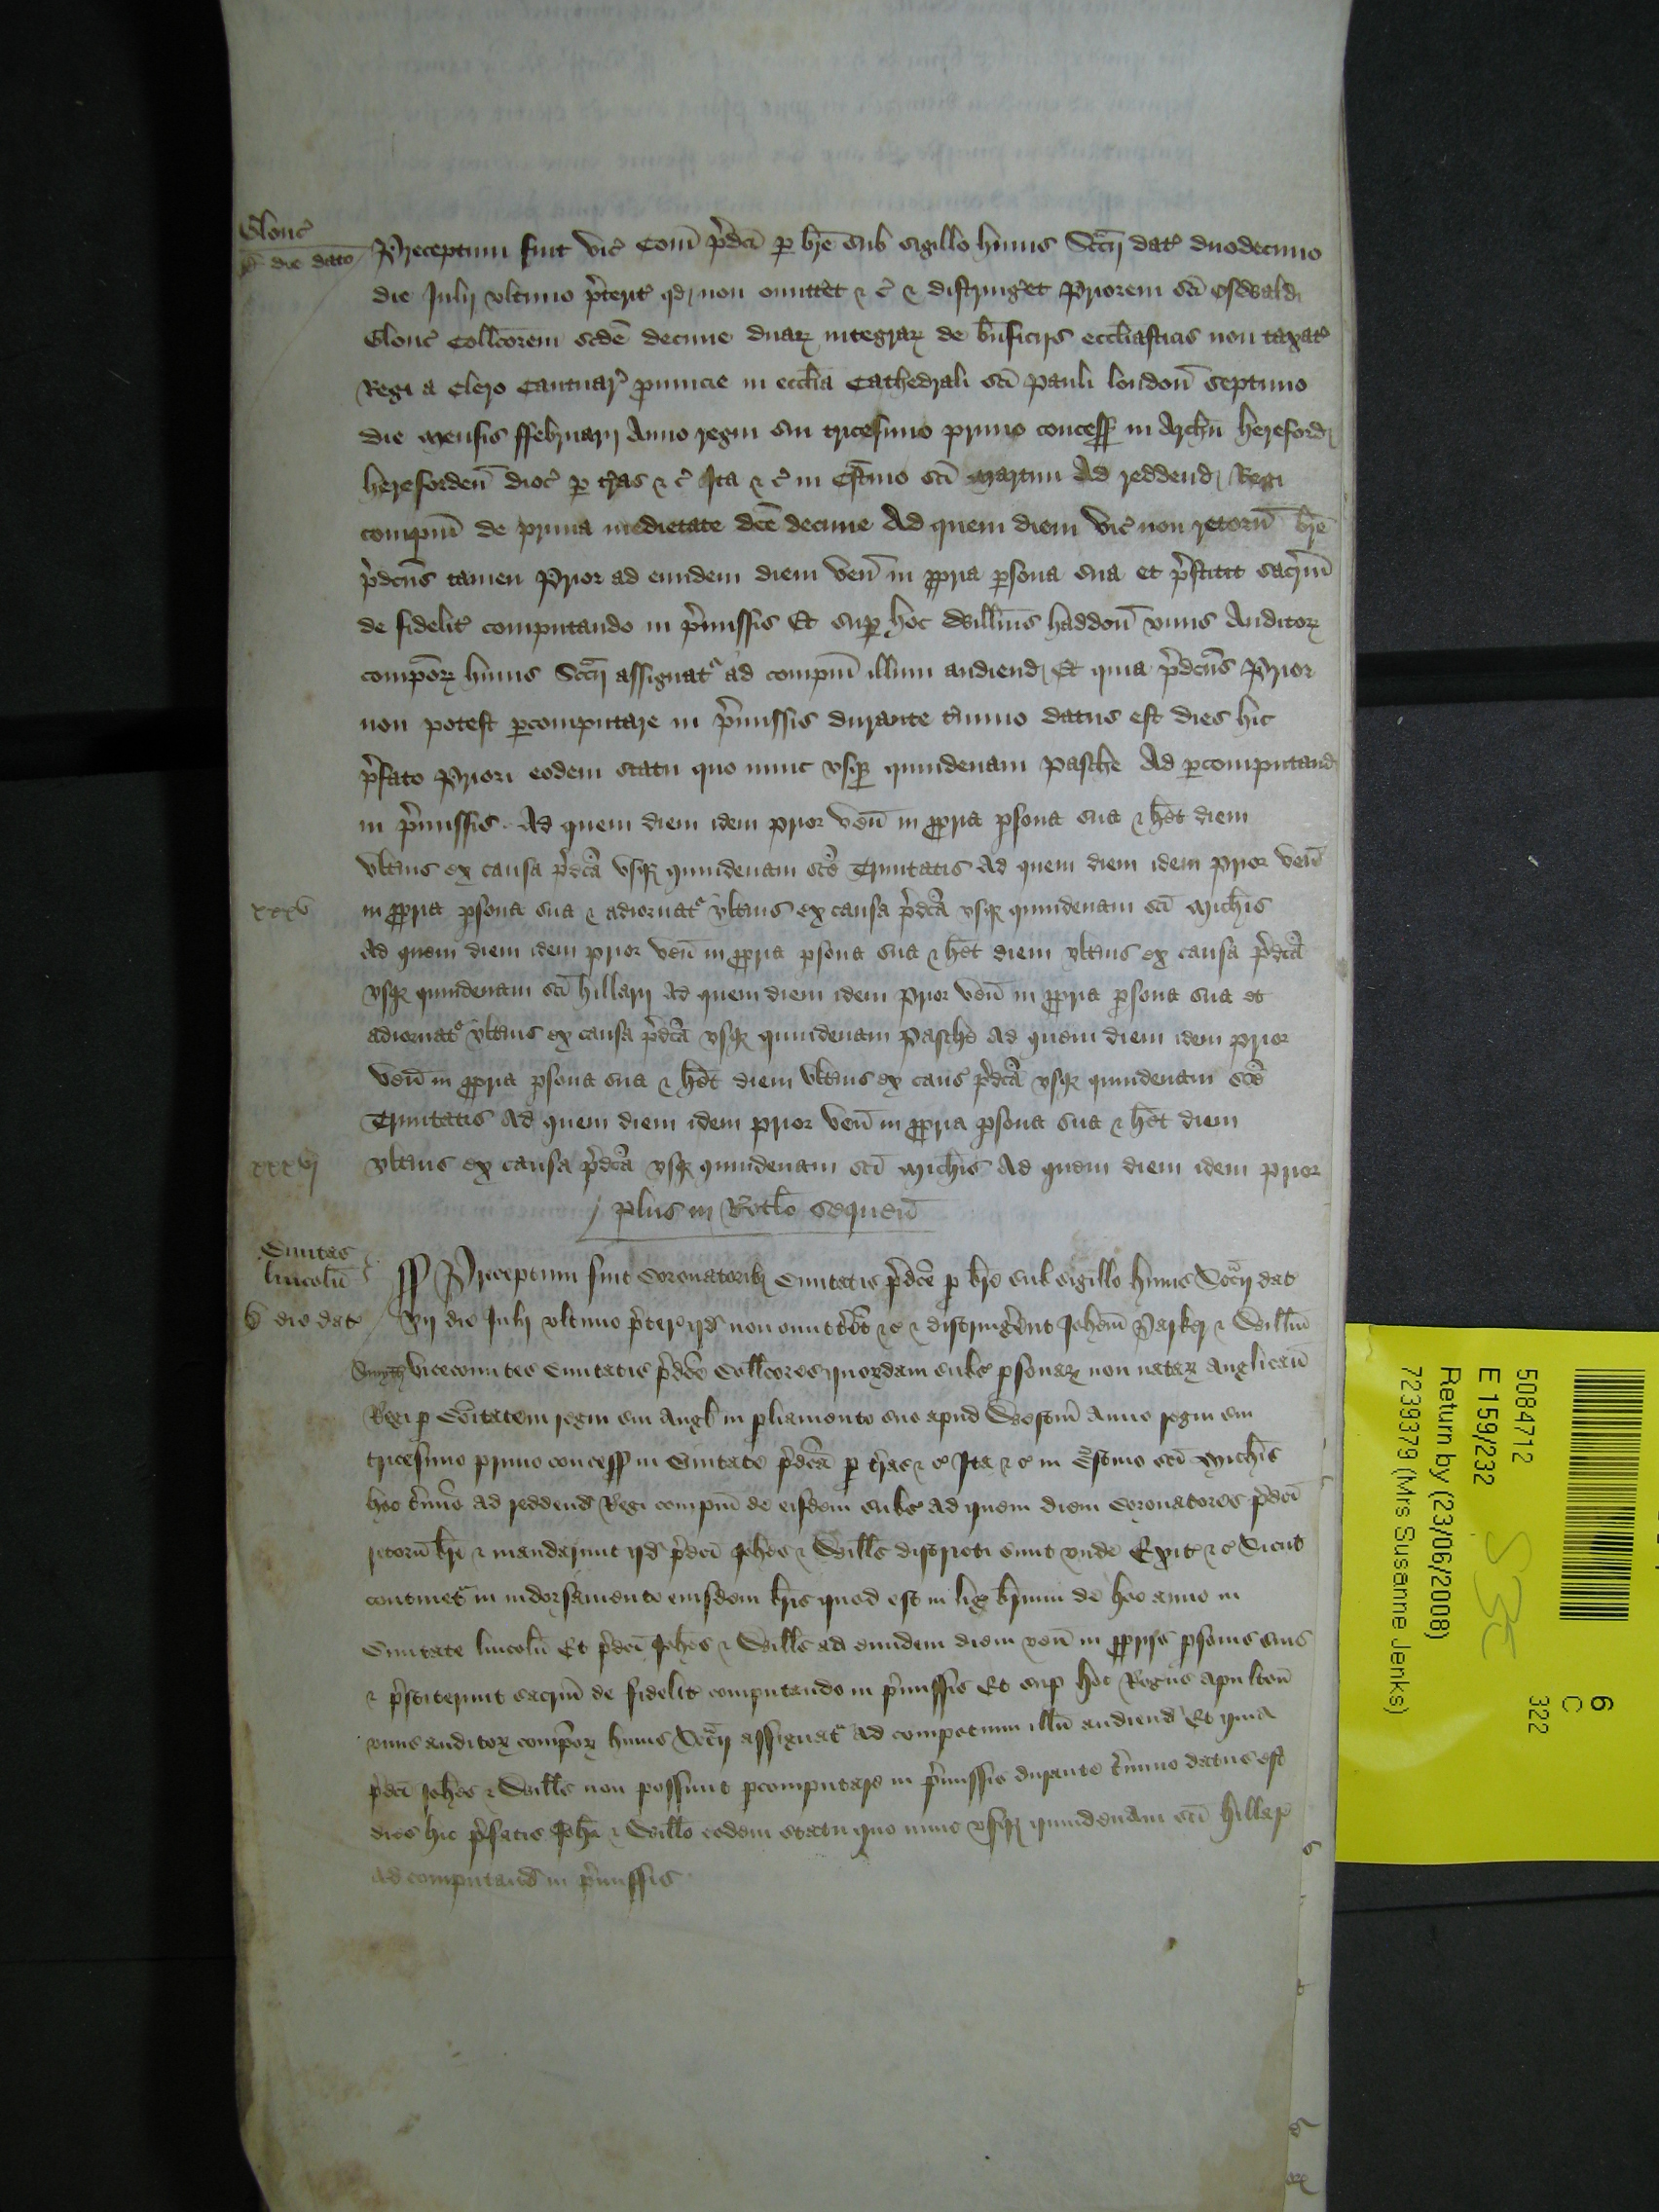 Glouc̃
de die dato
Preceptum fuit vic̃ Com̃ p̃dc̃i p br̃e sub sigillo huius Scc̃ij dat̃ duodecimo
die Julij ultimo p̃terit̃ qd non omittet & c̃ & distring̃et Priorem sc̃i Oswaldi
Glouc̃ Collc̃orem sc̃de decime duaꝝ integraꝝ de bñficijs eccl̃iasticis non taxat̃
Regi a Clero Cantuar̃ prouincie in eccl̃ia Cathedrali sc̃i Pauli london̄ septimo
die mensis ffebruarij Anno regni sui tricesimo primo concess̃ in Archñ hereford
hereforden̄ dioc̃ p lr̃as & c̃ Ita & c̃ in Cr̃stino sc̃i Martini Ad reddend Regi
compm̃ de prima medietate dc̃e decime Ad quem diem vic̃ non retorn̄ br̃e
p̃dcũs tamen Prior ad eundem diem ven̄ in ppria psona sua et p̃stitit sacr̃m
de fidelit̃ computando in p̃missis Et sup hoc Willm̃s haddon̄ unus Auditoꝝ
compoꝝ huius Scc̃ij assignat̃ ad compm̃ illum audiend Et quia p̃dcũs Prior
non potest pcomputare in p̃missis durante t̃mino datus est dies hic
p̃fato Priori eodem statu quo nunc usqꝫ quindenam Pasche Ad pcomputand
in p̃missis. Ad quem diem idem prior ven̄ in ppria psona sua & h̃et diem
ult̃ius ex causa p̃dc̃a usqꝫ quindenam sc̃e Trinitatis Ad quem diem idem prior ven̄
xxxv
in ppria psona sua & adiornat̃ ult̃ius ex causa p̃dc̃a usqꝫ quindenam sc̃i Mich̃is
Ad quem diem idem prior ven̄ in ppria psona sua & h̃et diem ult̃ius ex causa p̃dc̃a
usqꝫ quindenam sc̃i hillarij Ad quem diem idem Prior ven̄ in ppria psona sua et
adiornat̃ ult̃ius ex causa p̃dc̃a usqꝫ quindenam Pasche Ad quem diem idem prior
ven̄ in ppria psona sua & h̃et diem ult̃ius ex caus̃ p̃dc̃a usqꝫ quindenam sc̃e
Trinitatis Ad quem diem idem prior ven̄ in ppria psona sua & h̃et diem
xxxvj
ult̃ius ex causa p̃dc̃a usqꝫ quindenam sc̃i Mich̃is Ad quem diem idem prior
plus in Rotl̃o sequen̄
Ciuitas
lincoln̄
de die dat̃
Preceptum fuit Coronatoribꝫ Ciuitatis p̃dc̃e p br̃e sub sigillo huius Scc̃ij dat̃
vij die Julij ultimo p̃terit̃ qd non omitt̃ent &c̃ & distring̃ent Joh̃em Parker & Willm̃
Smyth vicecomites Ciuitatis p̃dc̃e Collc̃ores quordam subs̃ psonaꝝ non nataꝝ anglican̄
Regi p Co͠itatem regni sui Angl̃ in pliamento suo apud Westm̃ Anno regni sui
tricesimo primo concess̃ in Ciuitate p̃dc̃a p lr̃as & c̃ Ita & c̃ in Cr̃stino sc̃i Mich̃is
hoc t̃mino ad reddend Regi compm̃ de eisdem subs̃ ad quem diem Coronatores p̃dc̃i
retorn̄ br̃e & mandarunt qd p̃dc̃i Joh̃es & Will̃s districti sunt unde Exit̃ & c̃ Sicut
continet̃ in indorsamento eiusdem br̃is quod est in lig̃ br̃ium de hoc anno in
Ciuitate lincoln̄ Et p̃dc̃i Joh̃es & Will̃s ad eundem diem ven̄ in pprijs psonis suis
& p̃stiterunt sacr̃m de fidelit̃ computando in p̃missis Et sup hoc Rog̃us Apulton̄
unus auditoꝝ compoꝝ huius Scc̃ij assignat̃ ad compotum illũ audiend Et quia
p̃dc̃i Joh̃es & Will̃s non possunt pcomputare in p̃missis durante t̃mino datus est
dies hic p̃fatis Joh̃i & Will̃o eodem statu quo nunc usqꝫ quindenam sc̃i hillar̃
ad computand in p̃missis
5084712
E 159/232
Return by (23/06/2008)
7239379 (Mrs Susanne Jenks)
6
C
322